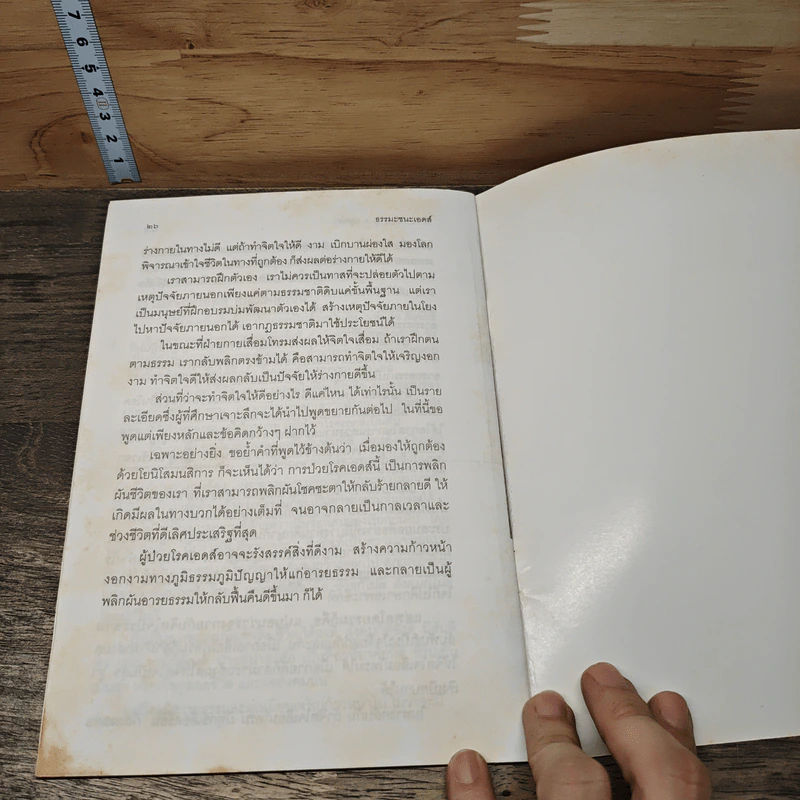 7
6
5
4
3
2
1
๒๖ ธรรมะชนะเอดส์
ร่างกายในทางไม่ดี แต่ถ้าทำจิตใจให้ดี งาม เบิกบานผ่องใส มองโลก
พิจารณาเข้าใจชีวิตในทางที่ถูกต้อง ก็ส่งผลต่อร่างกายให้ดีได้
เราสามารถฝึกตัวเอง เราไม่ควรเป็นทาสที่จะปล่อยตัวไปตาม
เหตุปัจจัยภายนอกเพียงแค่ตามธรรมชาติดิบแค่ขั้นพื้นฐาน แต่เรา
เป็นมนุษย์ที่ฝึกอบรมบ่มพัฒนาตัวเองได้ สร้างเหตุปัจจัยภายในโยง
ไปหาปัจจัยภายนอกได้ เอากฎธรรมชาติมาใช้ประโยชน์ได้
ในขณะที่ฝ่ายกายเสื่อมโทรมส่งผลให้จิตใจเสื่อม ถ้าเราฝึกตน
ตามธรรม เรากลับพลิกตรงข้ามได้ คือสามารถทำจิตใจให้เจริญงอก
งาม ทำจิตใจดีให้ส่งผลกลับเป็นปัจจัยให้ร่างกายดีขึ้น
ส่วนที่ว่าจะทำจิตใจให้ดีอย่างไร ดีแค่ไหน ได้เท่าไรนั้น เป็นราย
ละเอียดซึ่งผู้ที่ศึกษาเจาะลึกจะได้นำไปพูดขยายกันต่อไป ในที่นี้ขอ
พูดแต่เพียงหลักและข้อคิดกว้างๆ ฝากไว้
เฉพาะอย่างยิ่ง ขอย้ำคำที่พูดไว้ข้างต้นว่า เมื่อมองให้ถูกต้อง
ด้วยโยนิโสมนสิการ ก็จะเห็นได้ว่า การป่วยโรคเอดส์นี้ เป็นการพลิก
ผันชีวิตของเรา ที่เราสามารถพลิกผันโชคชะตาให้กลับร้ายกลายดี ให้
เกิดมีผลในทางบวกได้อย่างเต็มที่ จนอาจกลายเป็นกาลเวลาและ
ช่วงชีวิตที่ดีเลิศประเสริฐที่สุด
ผู้ป่วยโรคเอดส์อาจจะรังสรรค์สิ่งที่ดีงาม สร้างความก้าวหน้า
งอกงามทางภูมิธรรมภูมิปัญญาให้แก่อารยธรรม และกลายเป็นผู้
พลิกผันอารยธรรมให้กลับฟื้นคืนดีขึ้นมา ก็ได้